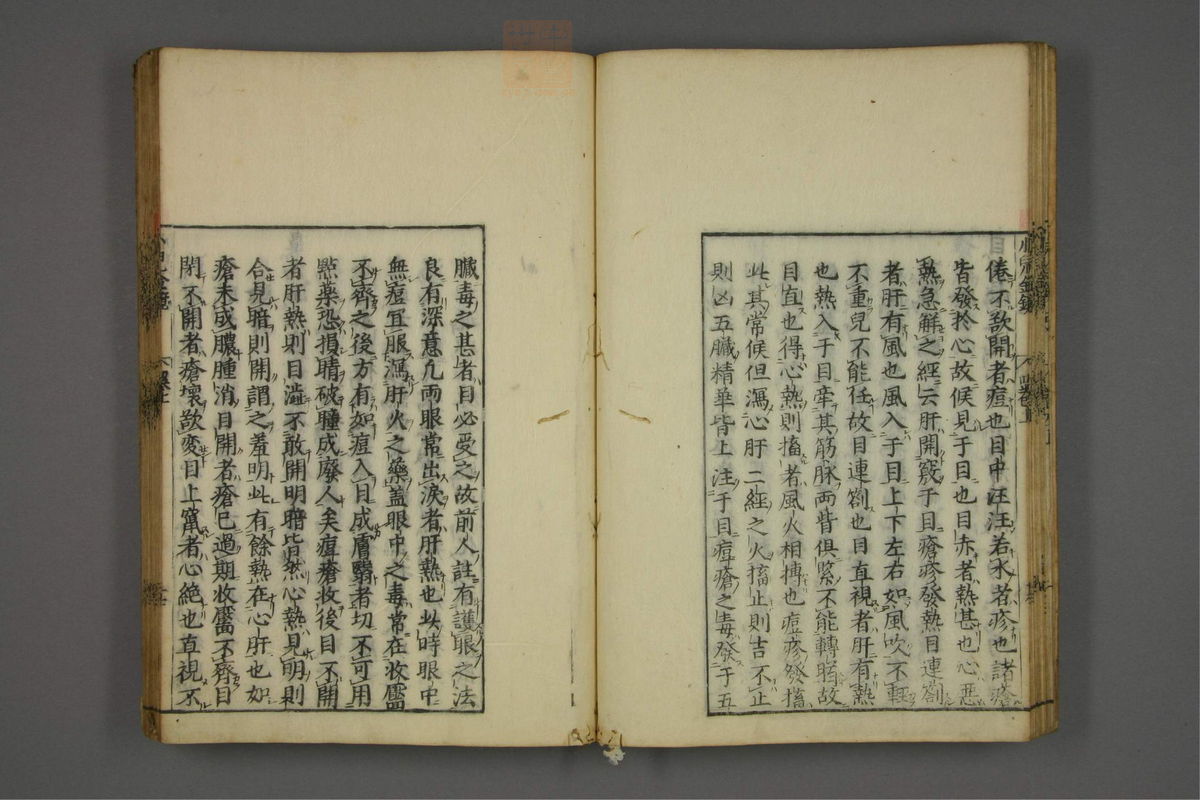 倦不欲開者痘也目中汪汪若水者疹也諸瘡
皆發於心故候見于目也目赤者熱甚也心惡
熱急解之經云肝開竅于目瘡疹發熱目連劄
者肝有風也風入于目上下左右如風吹不輕
不重兒不能任故目連劄也目直視者肝有熱
也熱入于目牽其筋脉兩眥俱緊不能轉睛故
目直也得心熱則搐者風火相搏也痘疹發搐
此其常候但瀉心肝二經之火搐止則吉不止
則凶五臟精華皆上注于目痘瘡之毒發于五
臟毒之甚者目必受之故前人註有護眼之法
良有深意凢兩眼常出淚者肝熱也此時眼中
無痘冝服瀉肝火之藥盖眼中之毒常在收靨
不齊之後方有如痘入目成膚翳者切不可用
點藥恐損睛破瞳成廢人矣痘瘡收後目不開
者肝熱則目澁不敢開明暗皆然心熱見明則
合見暗則開謂之羞明此有餘熱在心肝也如
瘡未成膿腫消目開者瘡已過期收靨不齊目
閉不開者瘡壞欲変目上竄者心絶也直視不